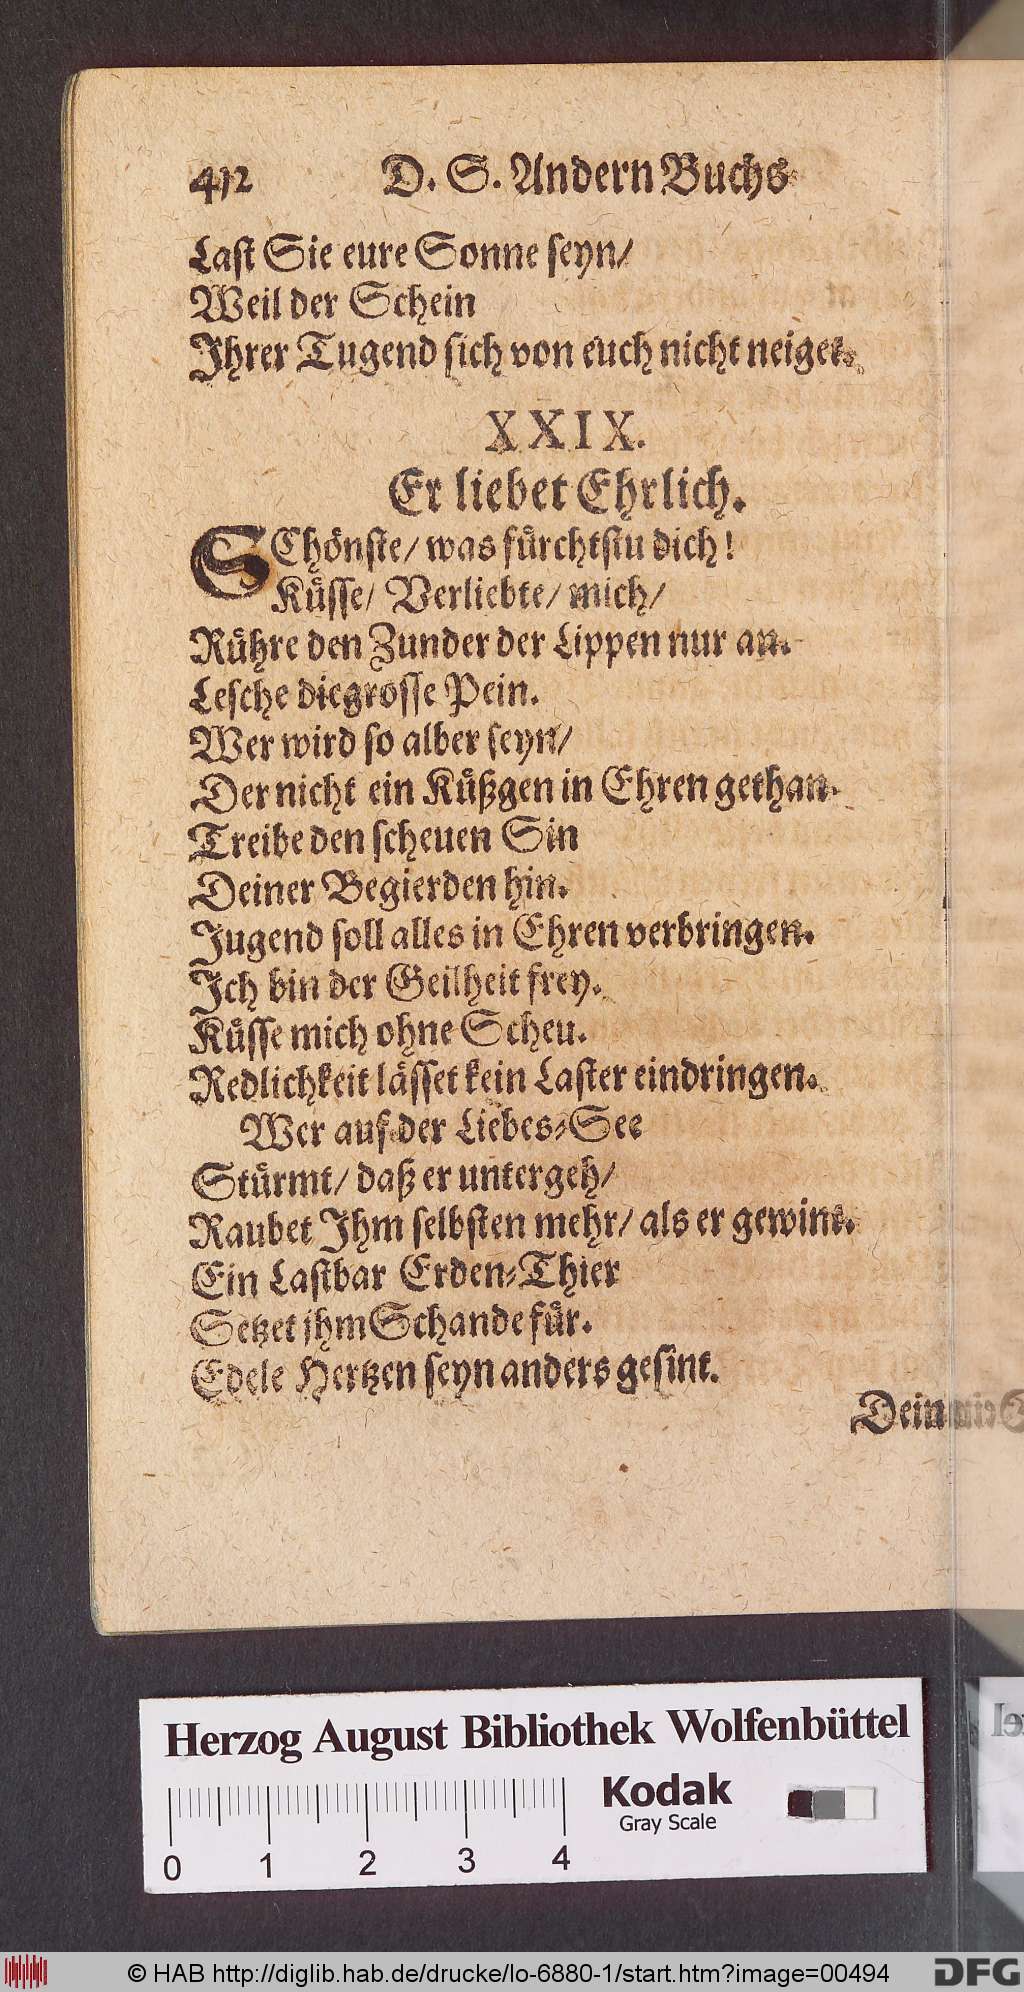 412 D. S. Andern Buchs
Laſt Sie eure Sonne ſeyn/
Weil der Schein
Ihrer Tugend ſich von euch nicht neiget.
XXIX.
Er liebet Ehrlich.
SChoͤnſte/ was fuͤrchtſtu dich!
Kuͤſſe/ Verliebte/ mich/
Ruͤhre den Zunder der Lippen nur an.
Leſche die groſſe Pein.
Wer wird ſo alber ſeyn/
Der nicht ein Kuͤßgen in Ehren gethan.
Treibe den ſcheuen Sin
Deiner Begierden hin.
Jugend ſoll alles in Ehren verbringen.
Ich bin der Geilheit frey.
Kuͤſſe mich ohne Scheu.
Redlichkeit laͤſſet kein Laſter eindringen.
Wer auf der Liebes-See
Stuͤrmt/ daß er untergeh/
Raubet Ihm ſelbſten mehr/ als er gewint.
Ein Laſtbar Erden-Thier
Setzet jhm Schande fuͤr.
Edele Hertzen ſeyn anders geſint.
Dein
Herzog August Bibliothek Wolfenbüttel
Kodak
Gray Scale
0 1 2 3 4
© HAB http://diglib.hab.de/drucke/lo-6880-1/start.htm?image=00494
DFG